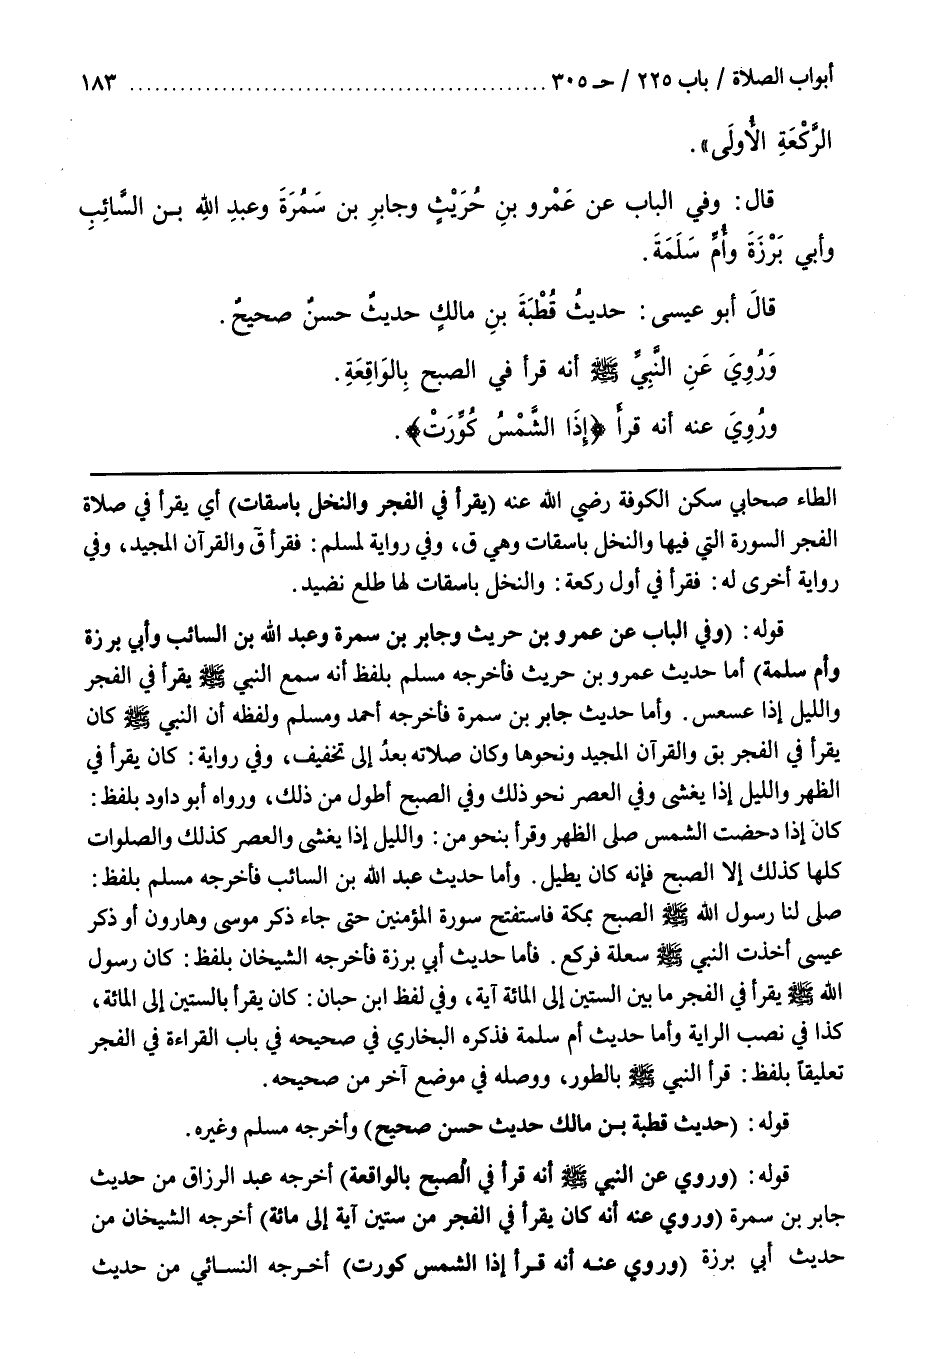 أبواب الصلاة / باب ٢٢٥ / حـ ٣٠٥ ........................................ ١٨٣
الرَّكْعَةِ الأُولَى» .
قال: وفي الباب عن عَمْرو بنِ حُرَيْثٍ وجابرِ بن سَمُرَةَ وعبدِ اللهِ بـن السَّائِبِ
وأبي بَرْزَةَ وأُمِّ سَلَمَةَ .
قالَ أبو عيسى: حديثُ قُطْبَةَ بنِ مالكٍ حديثٌ حسنٌ صحيحٌ .
وَرُوِيَ عَنِ النَّبِيِّ ﷺ أنه قرأ في الصبح بِالوَاقِعَةِ .
ورُوِيَ عنه أنه قرأَ ﴿إِذَا الشَّمْسُ كُوِّرَتْ﴾ .
الطاء صحابي سكن الكوفة رضي الله عنه (يقرأ في الفجر والنخل باسقات) أي يقرأ في صلاة
الفجر السورة التي فيها والنخل باسقات وهي ق، وفي رواية لمسلم: فقرأ قٓ والقرآن المجيد، وفي
رواية أخرى له: فقرأ في أول ركعة: والنخل باسقات لها طلع نضيد.
قوله: (وفي الباب عن عمرو بن حريث وجابر بن سمرة وعبد الله بن السائب وأبي برزة
وأم سلمة) أما حديث عمرو بن حريث فأخرجه مسلم بلفظ أنه سمع النبي ﷺ يقرأ في الفجر
والليل إذا عسعس. وأما حديث جابر بن سمرة فأخرجه أحمد ومسلم ولفظه أن النبي ﷺ كان
يقرأ في الفجر بق والقرآن المجيد ونحوها وكان صلاته بعدُ إلى تخفيف، وفي رواية: كان يقرأ في
الظهر والليل إذا يغشى وفي العصر نحو ذلك وفي الصبح أطول من ذلك، ورواه أبو داود بلفظ:
كان إذا دحضت الشمس صلى الظهر وقرأ بنحو من: والليل إذا يغشى والعصر كذلك والصلوات
كلها كذلك إلا الصبح فإنه كان يطيل. وأما حديث عبد الله بن السائب فأخرجه مسلم بلفظ:
صلى لنا رسول الله ﷺ الصبح بمكة فاستفتح سورة المؤمنين حتى جاء ذكر موسى وهارون أو ذكر
عيسى أخذت النبي ﷺ سعلة فركع. فأما حديث أبي برزة فأخرجه الشيخان بلفظ: كان رسول
الله ﷺ يقرأ في الفجر ما بين الستين إلى المائة آية، وفي لفظ ابن حبان: كان يقرأ بالستين إلى المائة،
كذا في نصب الراية وأما حديث أم سلمة فذكره البخاري في صحيحه في باب القراءة في الفجر
تعليقاً بلفظ: قرأ النبي ﷺ بالطور، ووصله في موضع آخر من صحيحه.
قوله: (حديث قطبة بـن مالك حديث حسن صحيح) وأخرجه مسلم وغيره.
قوله: (وروي عن النبي ﷺ أنه قرأ في الصبح بالواقعة) أخرجه عبد الرزاق من حديث
جابر بن سمرة (وروي عنه أنه كان يقرأ في الفجر من ستين آية إلى مائة) أخرجه الشيخان من
حديث أبي برزة (وروي عنـه أنه قـرأ إذا الشمس كورت) أخـرجه النسـائي من حديث